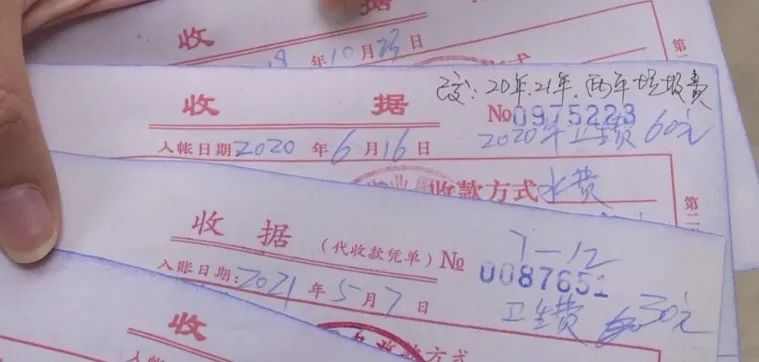 收 据
8 年 10 月 23 日
第一
改:20年.21年.两年垃圾费
收 据 No 0975223
2020年卫生费 60元
入帐日期 2020 年 6 月 16 日
收款方式 水费
第二
7-12
收 据 (代收款凭单) No 0087651
入账日期: 2021 年 5 月 7 日
卫生费 30元
收
收款方式